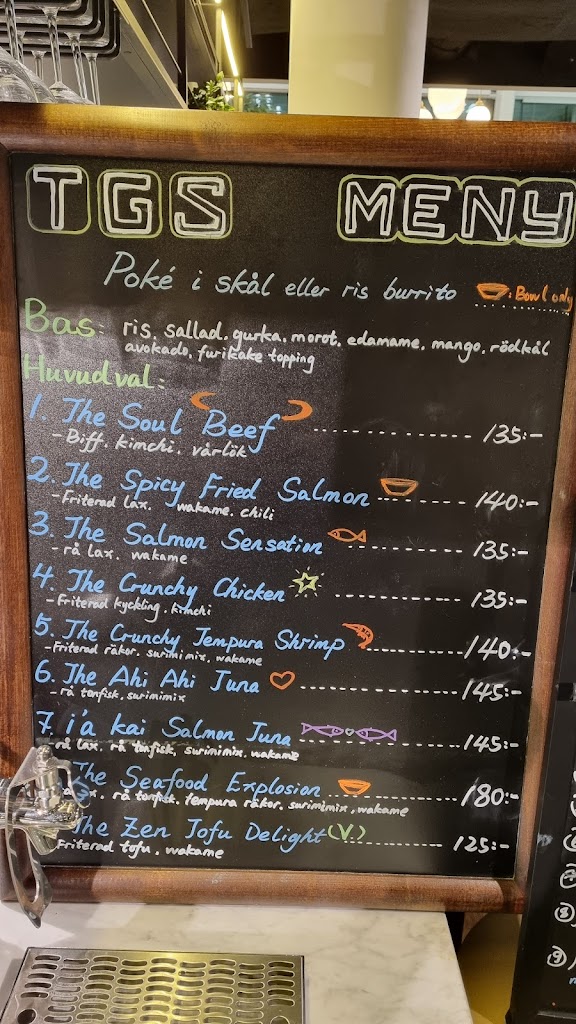 TGS MENY
Poké i skål eller ris burrito : Bowl only
Bas: ris, sallad, gurka, morot, edamame, mango, rödkål
avokado, furikake topping
Huvudval:
1. The Soul Beef 135:-
- Biff, kimchi, vårlök
2. The Spicy Fried Salmon 140:-
- Friterad lax, wakame, chili
3. The Salmon Sensation 135:-
- rå lax, wakame
4. The Crunchy Chicken 135:-
- Friterad kyckling, kimchi
5. The Crunchy Tempura Shrimp 140:-
- Friterad räkor, surimimix, wakame
6. The Ahi Ahi Tuna 145:-
- rå tonfisk, surimimix
7. i'a kai Salmon Tuna 145:-
rå lax, rå tonfisk, surimimix, wakame
The Seafood Explosion 180:-
rå tonfisk, tempura räkor, surimimix, wakame
The Zen Tofu Delight (V.) 125:-
Friterad tofu, wakame
8
9